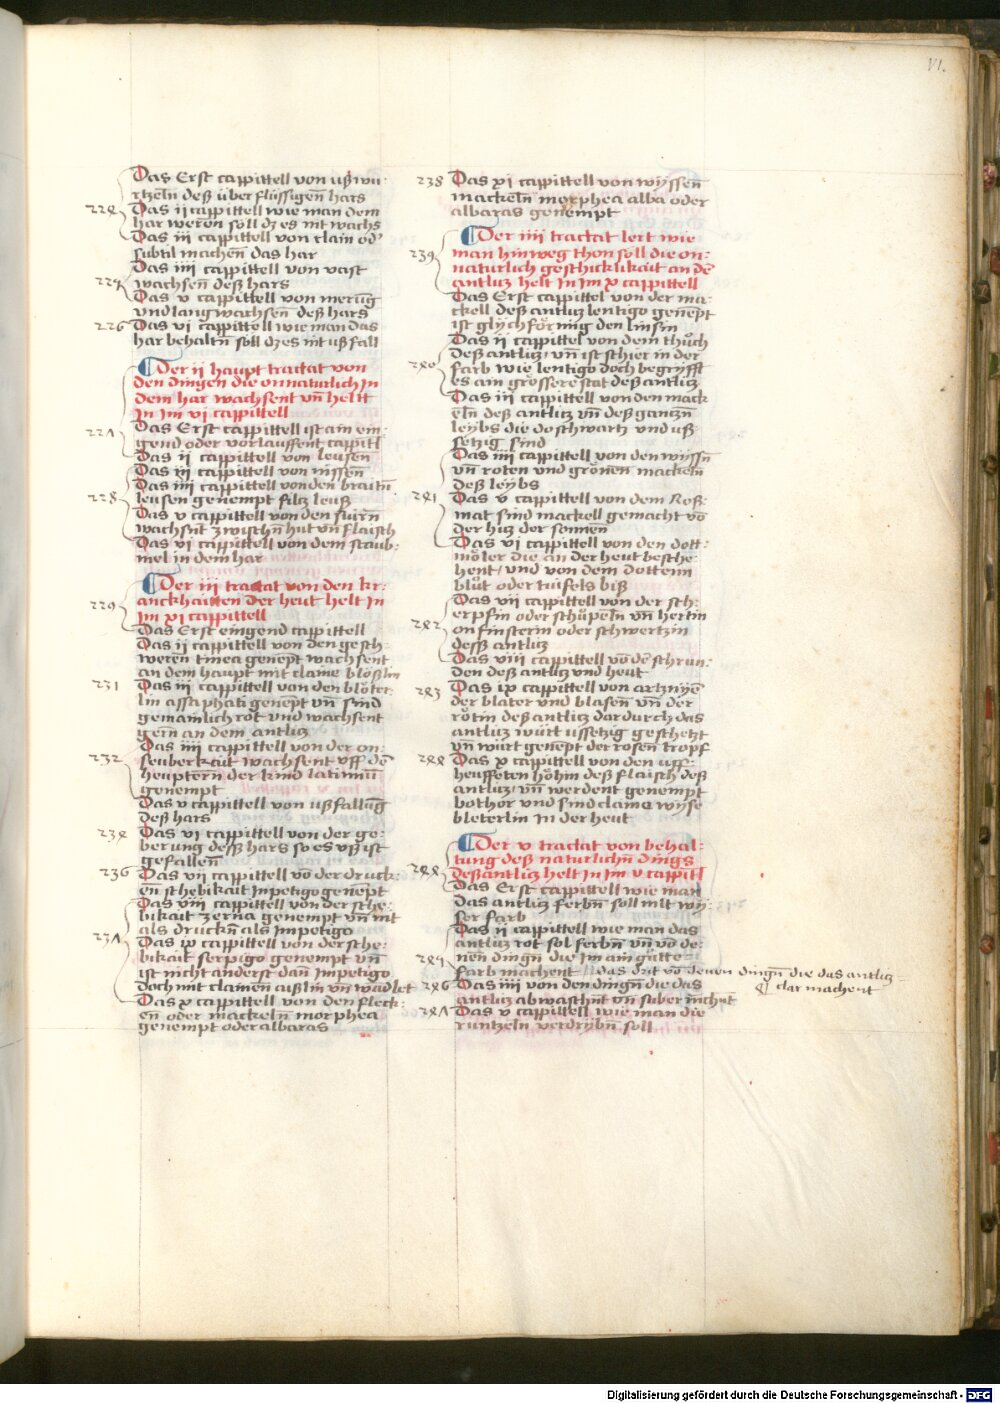 VI.
Das Erst cappittell von ußwu
rtzeln deß über flüssigen hars
224 Das ij cappittell wie man dem
har weren soll dz es nit wachs
Das iii cappittell von clain od'
subtil machen das har
Das iiii cappittell von vast
225 wachsen deß hars
Das v cappittell von merūg
vnd lang wachsen deß hars
226 Das vi cappittell wie man das
har behaltn̄ soll dz es nit uß fall
Der ii haupt tractat von
den dingen die onnaturlich jn
dem har wachsent vn̄ heltt
jn jm vi cappittell
227 Das Erst cappittell ist ain ein
gend oder vorlauffent cappitl
Das ii cappittell von leusen
Das iii cappittell von nissen
Das iiii cappittell von den braitn̄
228 leusen genempt filtz leuß
Das v cappittell von den
wachsent zwischn̄ hut vn̄ flaisch
Das vi cappittell von dem staub
mel in dem har
Der iii tractat von den kr
anckhaitten der heut helt jn
229 jm xi cappittell
Das Erst eingend cappittell
Das ii cappittell von den gesch
weren tinea genēpt wachsent
an dem haupt mit claine blößlin
231 Das iii cappittell von den blöter
lin assaphati genēpt vn̄ sind
gemainlich rot vnd wachsent
gern an dem antlitz
Das iiii cappittell von der on
232 seuberkait wachsent vff dē
heuptern der kind latinnū
genempt
Das v cappittell von ußfallūg
deß hars
234 Das vi cappittell von der ge
berung deß hars so es vß ist
gefallen
236 Das vii cappittell vō der druck
en schebikait jnpetigo genēpt
Das viii cappittell von der sche
bikait zerna genempt vn̄ nit
als druckn̄ als jmpetigo
237 Das ix cappittell von der sche
bikait serpigo genempt vn̄
ist nicht anderst dan̄ jmpetigo
doch mit clainen außlin vn̄ wadlet
Das x cappittell von den fleck
en oder mackeln morphea
genempt oder albaras
238 Das xi cappittell von wyssen
mackeln morphea alba oder
albaras genempt
Der iiii tractat lert wie
239 man hinweg thon soll die on
naturlich geschicklikait an dē
antlitz helt jn jm x cappittell
Das Erst cappittel von der ma
ckell deß antlitz lentigo genēpt
ist glych förmig den linsin
Das ii cappittel von dem thuch
deß antlitz vn̄ ist schier in der
240 farb wie lentigo doch begryfft
es ain grössere stat deß antlitz
Das iii cappittell von den mack
eln̄ deß antlitz vn̄ deß gantzn̄
leybs die do schwartz vnd uß
setzig sind
Das iiii cappittell von den wyssn̄
vn̄ roten vnd grönen mackeln
deß leybs
241 Das v cappittell von dem Roß
mat sind mackell gemacht vō
der hitz der sonnen
Das vi cappittell von den dott
möler die an der heut besche
hent / vnd von dem dottenn
blut oder tuifels biß
Das vii cappittell von der sch
erpfin oder schüpeln vn̄ hertin
242 on finsterin oder schwertzin
deß antlitz
Das viii cappittell vō dē schrun
den deß antlitz vnd heut
243 Das ix cappittell von artznyē
der blater vnd blasen vn̄ der
rötin deß antlitz dardurch das
antlitz würt ussetzig geschetzt
vn̄ würt genēpt der rosen tropf
244 Das x cappittell von den uff
heuffeten höhin deß flaisch deß
antlitz / vn̄ werdent genempt
bothor vnd sind claine wyse
bleterlin jn der heut
Der v tractat von behal
tung deß naturlichn̄ dings
244 deß antlitz helt jn jm v cappittl
Das Erst cappittell wie man
das antlitz ferbn̄ soll mit wy
ser farb
Das ii cappittell wie man das
antlitz rot sol ferbn̄ vn̄ vō de
245 nen dingn̄ die jm ain gutte
farb machent || das drit vō denen dingn̄ die das antlitz
clar machent
246 Das iiii von den dingn̄ die das
antlitz abwaschn̄t vn̄ suber machn̄t
247 Das v cappittell wie man die
runtzeln verdrybn̄ soll
Digitalisierung gefördert durch die Deutsche Forschungsgemeinschaft - DFG